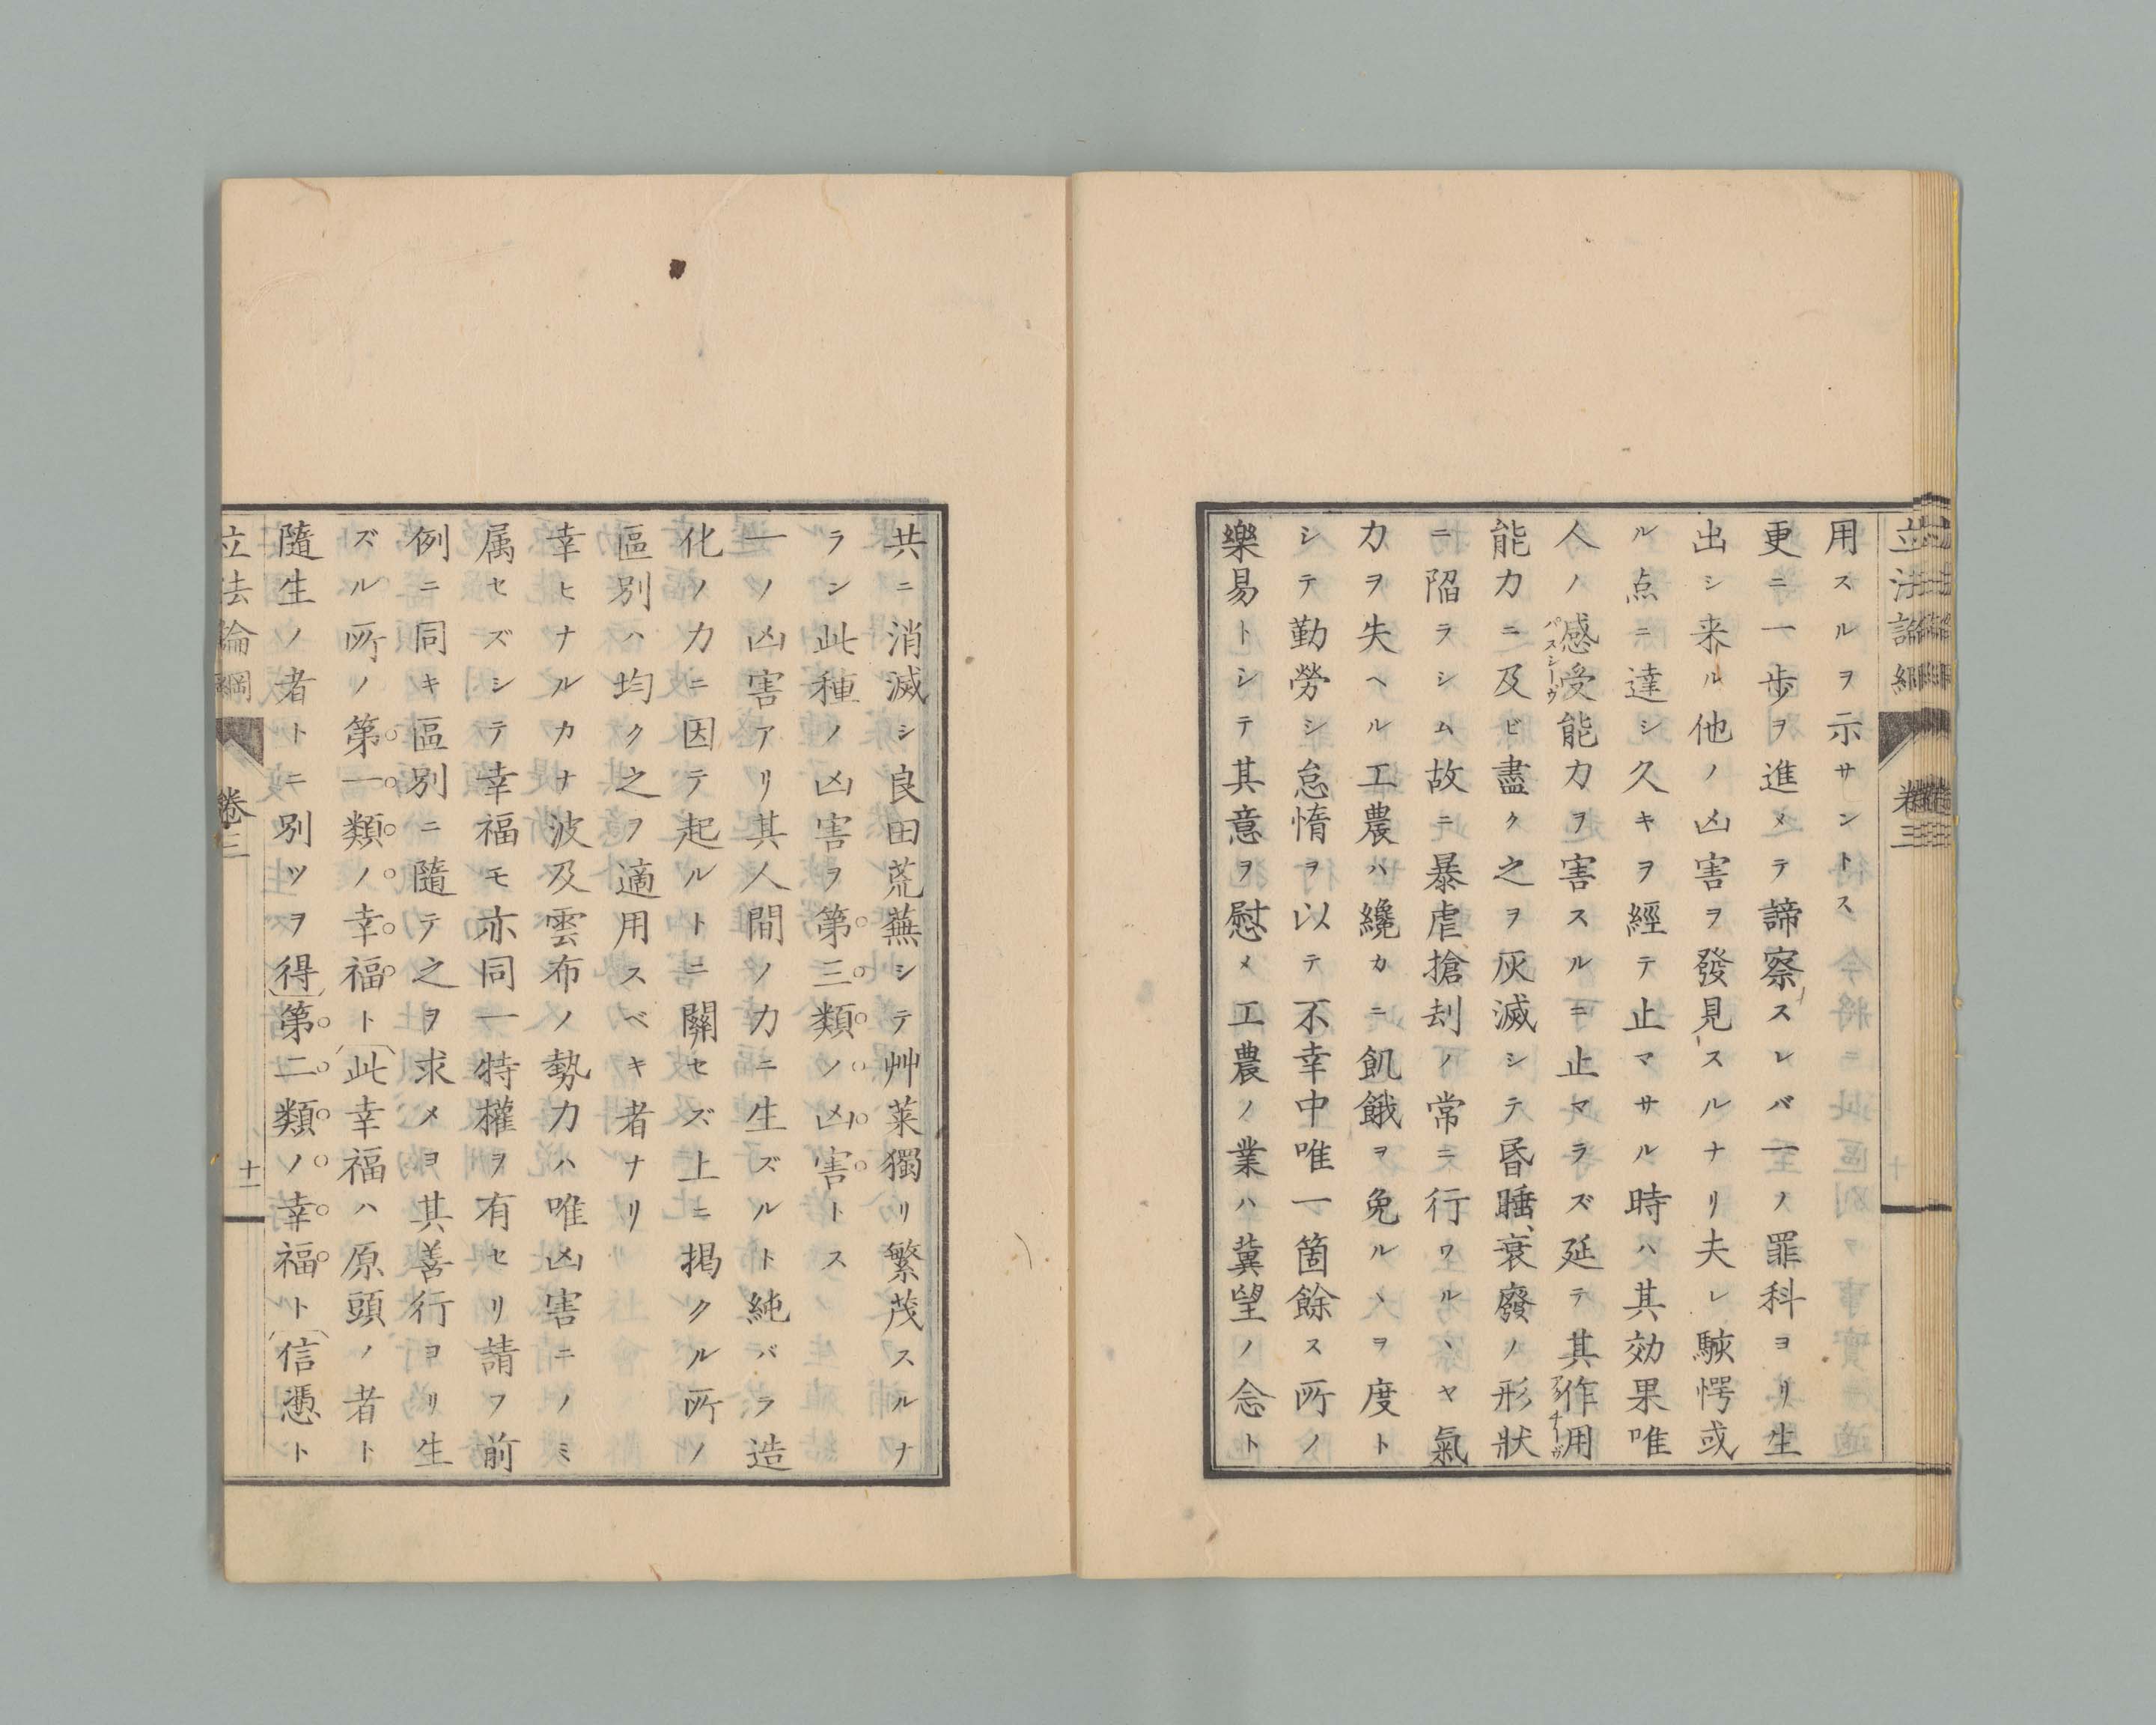 立法論綱 卷三
用スルヲ示サントス
更ニ一歩ヲ進メテ諦察スレバ一ノ罪科ヨリ生
出シ来ル他ノ凶害ヲ發見スルナリ夫レ駭愕或
ル点ニ達シ久キヲ經テ止マサル時ハ其効果唯
人ノ感受能力ヲ害スルニ止マラズ延テ其作用
パスシーヴ
アクチーヴ
能力ニ及ビ盡ク之ヲ灰滅シテ昏睡、衰廢ノ形狀
ニ陷ラシム故ニ暴虐搶刦ノ常ニ行ワルヽヤ氣
力ヲ失ヘル工農ハ纔カニ飢餓ヲ免ルヽヲ度ト
シテ勤勞シ怠惰ヲ以テ不幸中唯一箇餘ス所ノ
樂易トシテ其意ヲ慰メ工農ノ業ハ冀望ノ念ト
共ニ消滅シ良田荒蕪シテ艸莱獨リ繁茂スルナ
ラン此種ノ凶害ヲ第三類ノ凶害トス
一ノ凶害アリ其人間ノ力ニ生ズルト純バラ造
化ノ力ニ因テ起ルトニ關セズ上ニ掲クル所ノ
區別ハ均ク之ヲ適用スベキ者ナリ
幸ヒナルカナ波及雲布ノ勢力ハ唯凶害ニノミ
属セズシテ幸福モ亦同一特權ヲ有セリ請フ前
例ニ同キ區別ニ隨テ之ヲ求メヨ其善行ヨリ生
ズル所ノ第一類ノ幸福ト(此幸福ハ原頭ノ者ト
隨生ノ者トニ別ツヲ得)第二類ノ幸福ト(信憑ト
立法論綱 卷三 十一